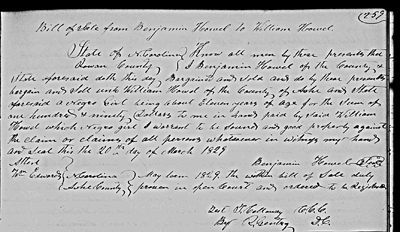 (259
Bill of Sale from Benjamin Howel to William Howel
State of N Carolina } Know all men by these presents that
Rowan County } I Benjamin Howel of the County &
State aforesaid doth this day Bargained and Sold and do by these presents
bargain and Sell unto William Howel of the County of Ashe and State
aforesaid a Negro Girl being about Eleven years of age for the Sum of
one hundred & ninety Dollars to me in hand paid by said William
Howel which Negro girl I warant to be Sound and good property against
the Claim or Claims of all persons whatsoever in witness my hand
and Seal this the 20th day of March 1829
Attest Benjamin Howel Seal
Wm Edwards } N Carolina } May Term 1829. The within bill of Sale duly
Ashe County } proven in open Court and ordered to be Registered
Test T. Calloway C.C.C.
By R. Gentry D.C.